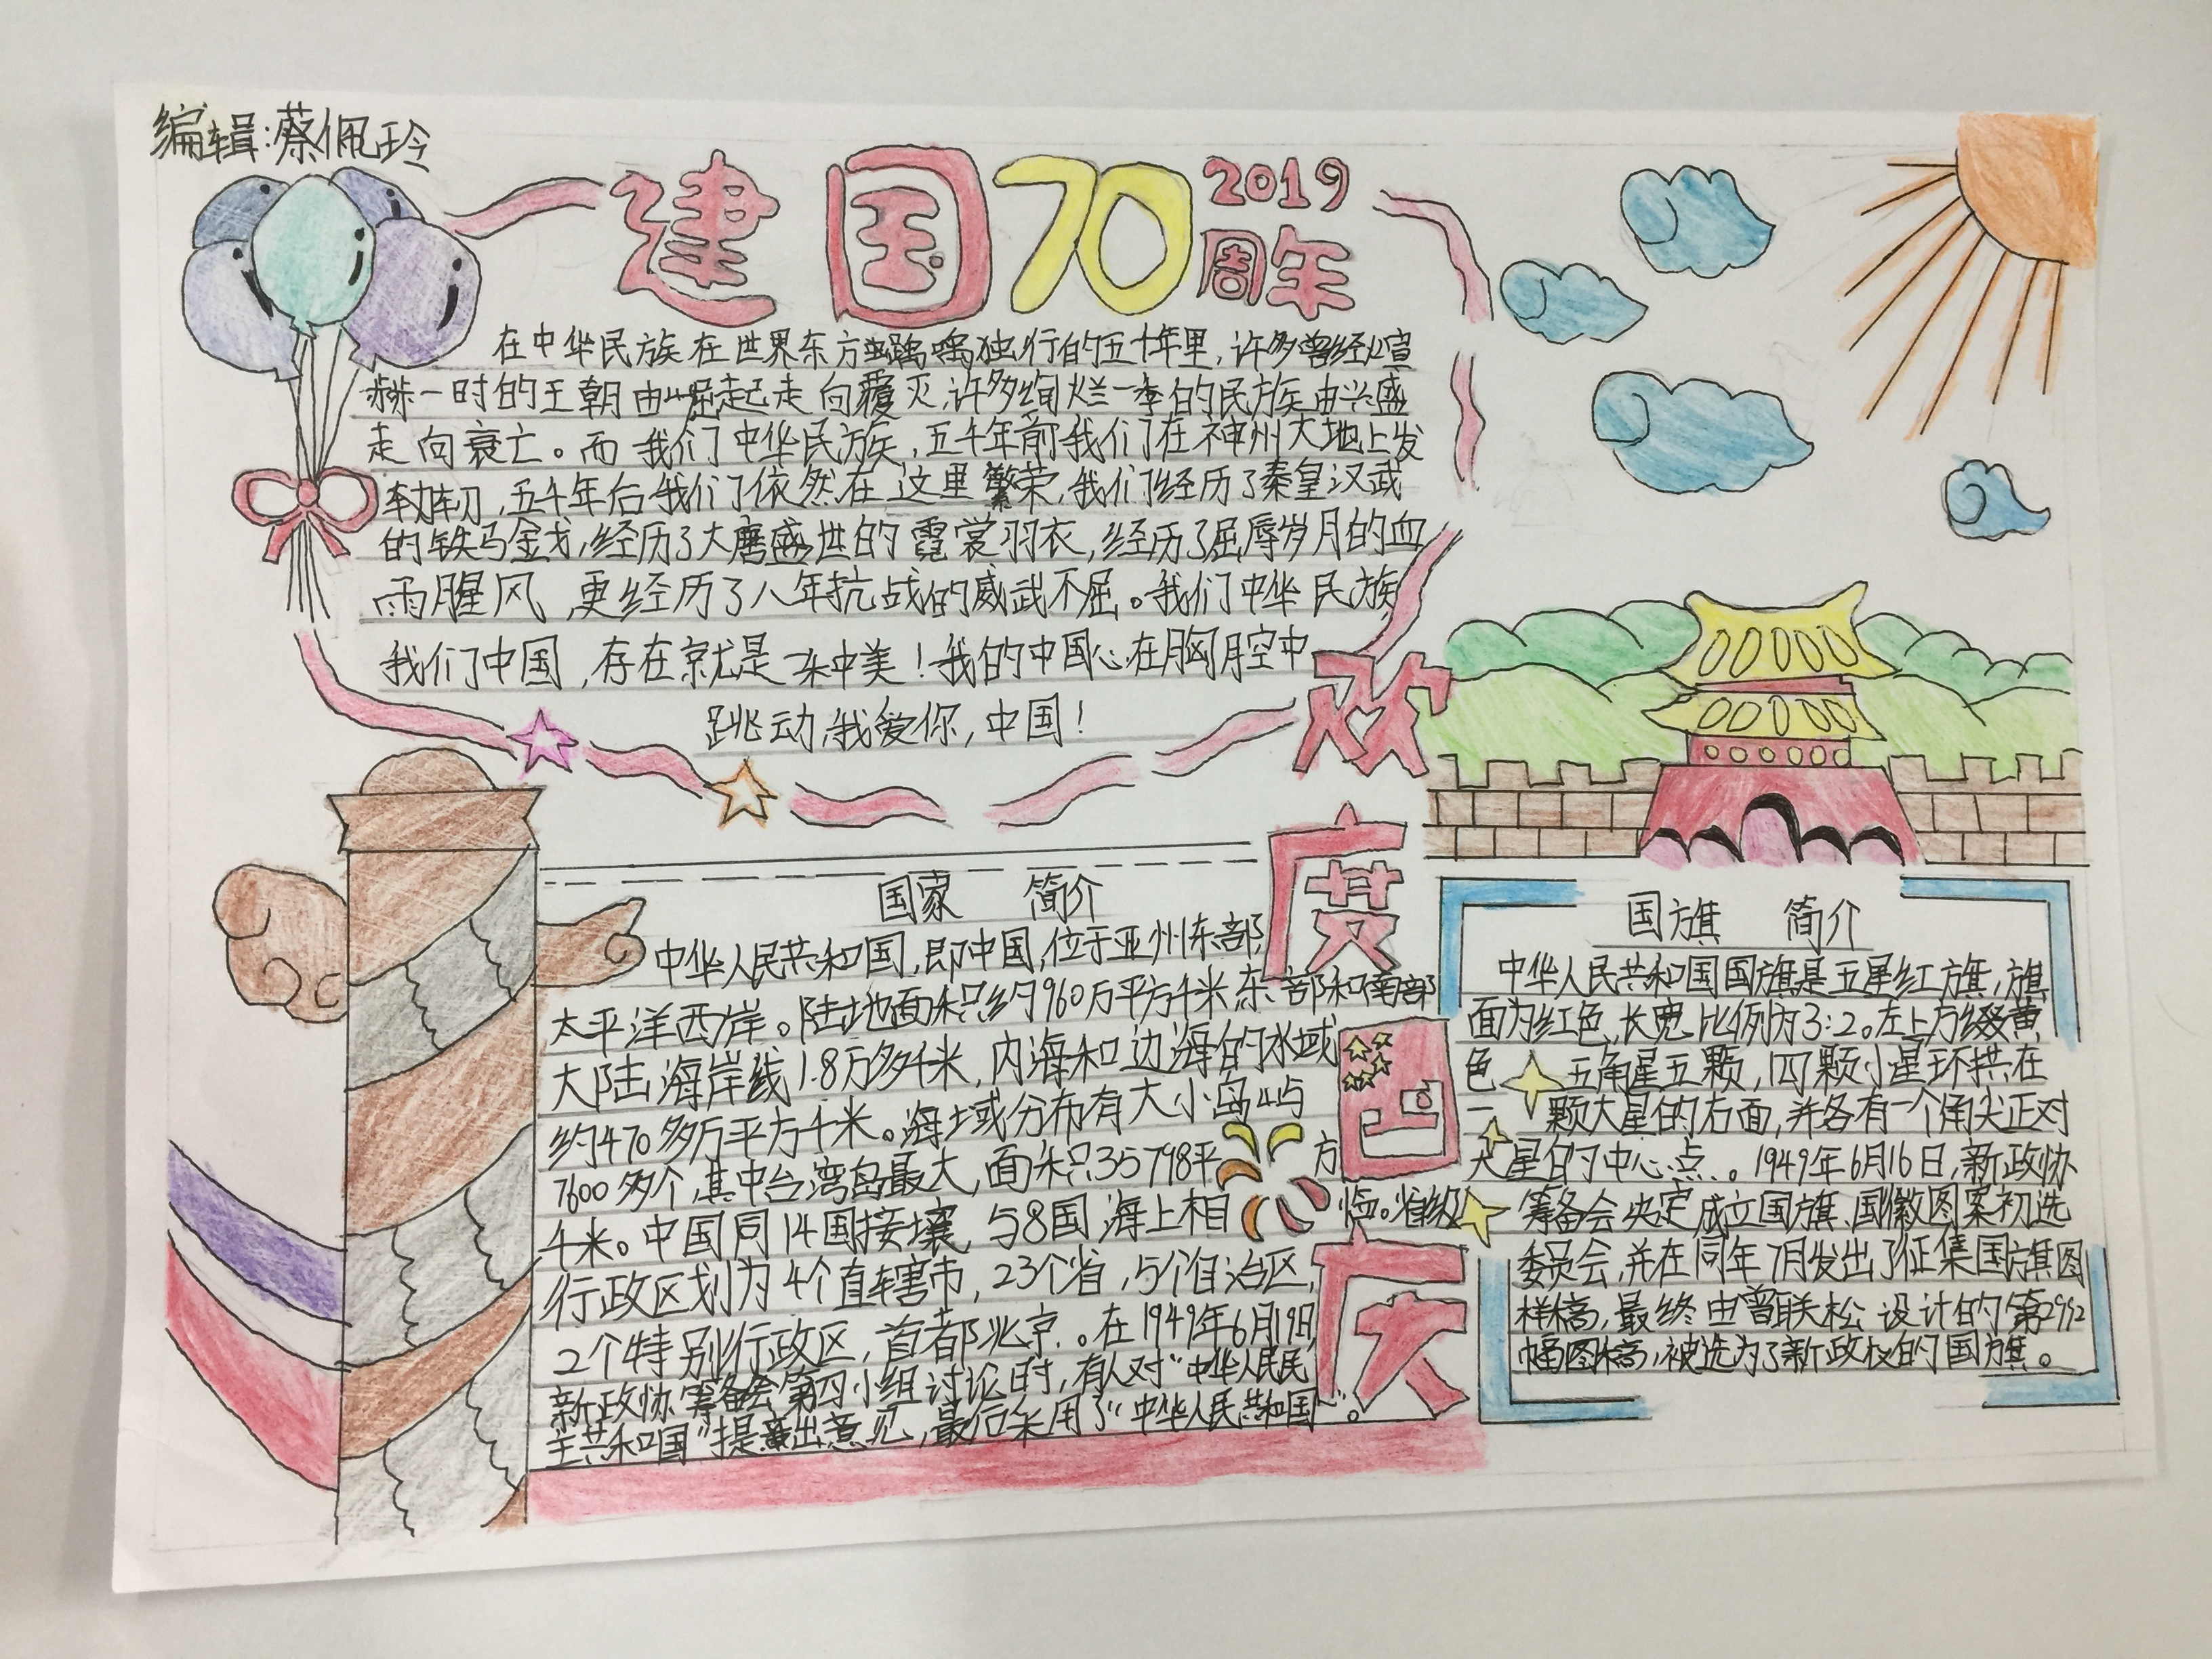 编辑:蔡佩玲
建国70周年
2019
在中华民族在世界东方踽踽独行的五千年里，许多曾经煊
赫一时的王朝由崛起走向覆灭，许多绚烂一季的民族由兴盛
走向衰亡。而我们中华民族，五千年前我们在神州大地上发
轫，五千年后我们依然在这里繁荣，我们经历了秦皇汉武
的铁马金戈，经历了大唐盛世的霓裳羽衣，经历了屈辱岁月的血
雨腥风，更经历了八年抗战的威武不屈。我们中华民族
我们中国，存在就是一种美！我的中国心在胸腔中
跳动，我爱你，中国！
欢度国庆
国家 简介
中华人民共和国，即中国，位于亚州东部
太平洋西岸。陆地面积约960万平方千米东部和南部
大陆海岸线1.8万多千米，内海和边海的水域
约470多万平方千米。海域分布有大小岛屿
7600多个，其中台湾岛最大，面积35798平方
千米。中国同14国接壤，与8国海上相临。省级
行政区划为4个直辖市，23个省，5个自治区，
2个特别行政区，首都北京。在1949年6月19日
新政协筹备会第四小组讨论时，有人对“中华人民民
主共和国”提出意见，最后采用了“中华人民共和国”。
国旗 简介
中华人民共和国国旗是五星红旗，旗
面为红色，长宽比例为3:2。左上方缀黄
色五角星五颗，四颗小星环拱在
一颗大星的右面，并各有一个角尖正对
大星的中心点。1949年6月16日，新政协
筹备会决定成立国旗、国徽图案初选
委员会，并在同年7月发出了征集国旗图
样稿，最终由曾联松设计的第2992
幅图稿，被选为了新政权的国旗。